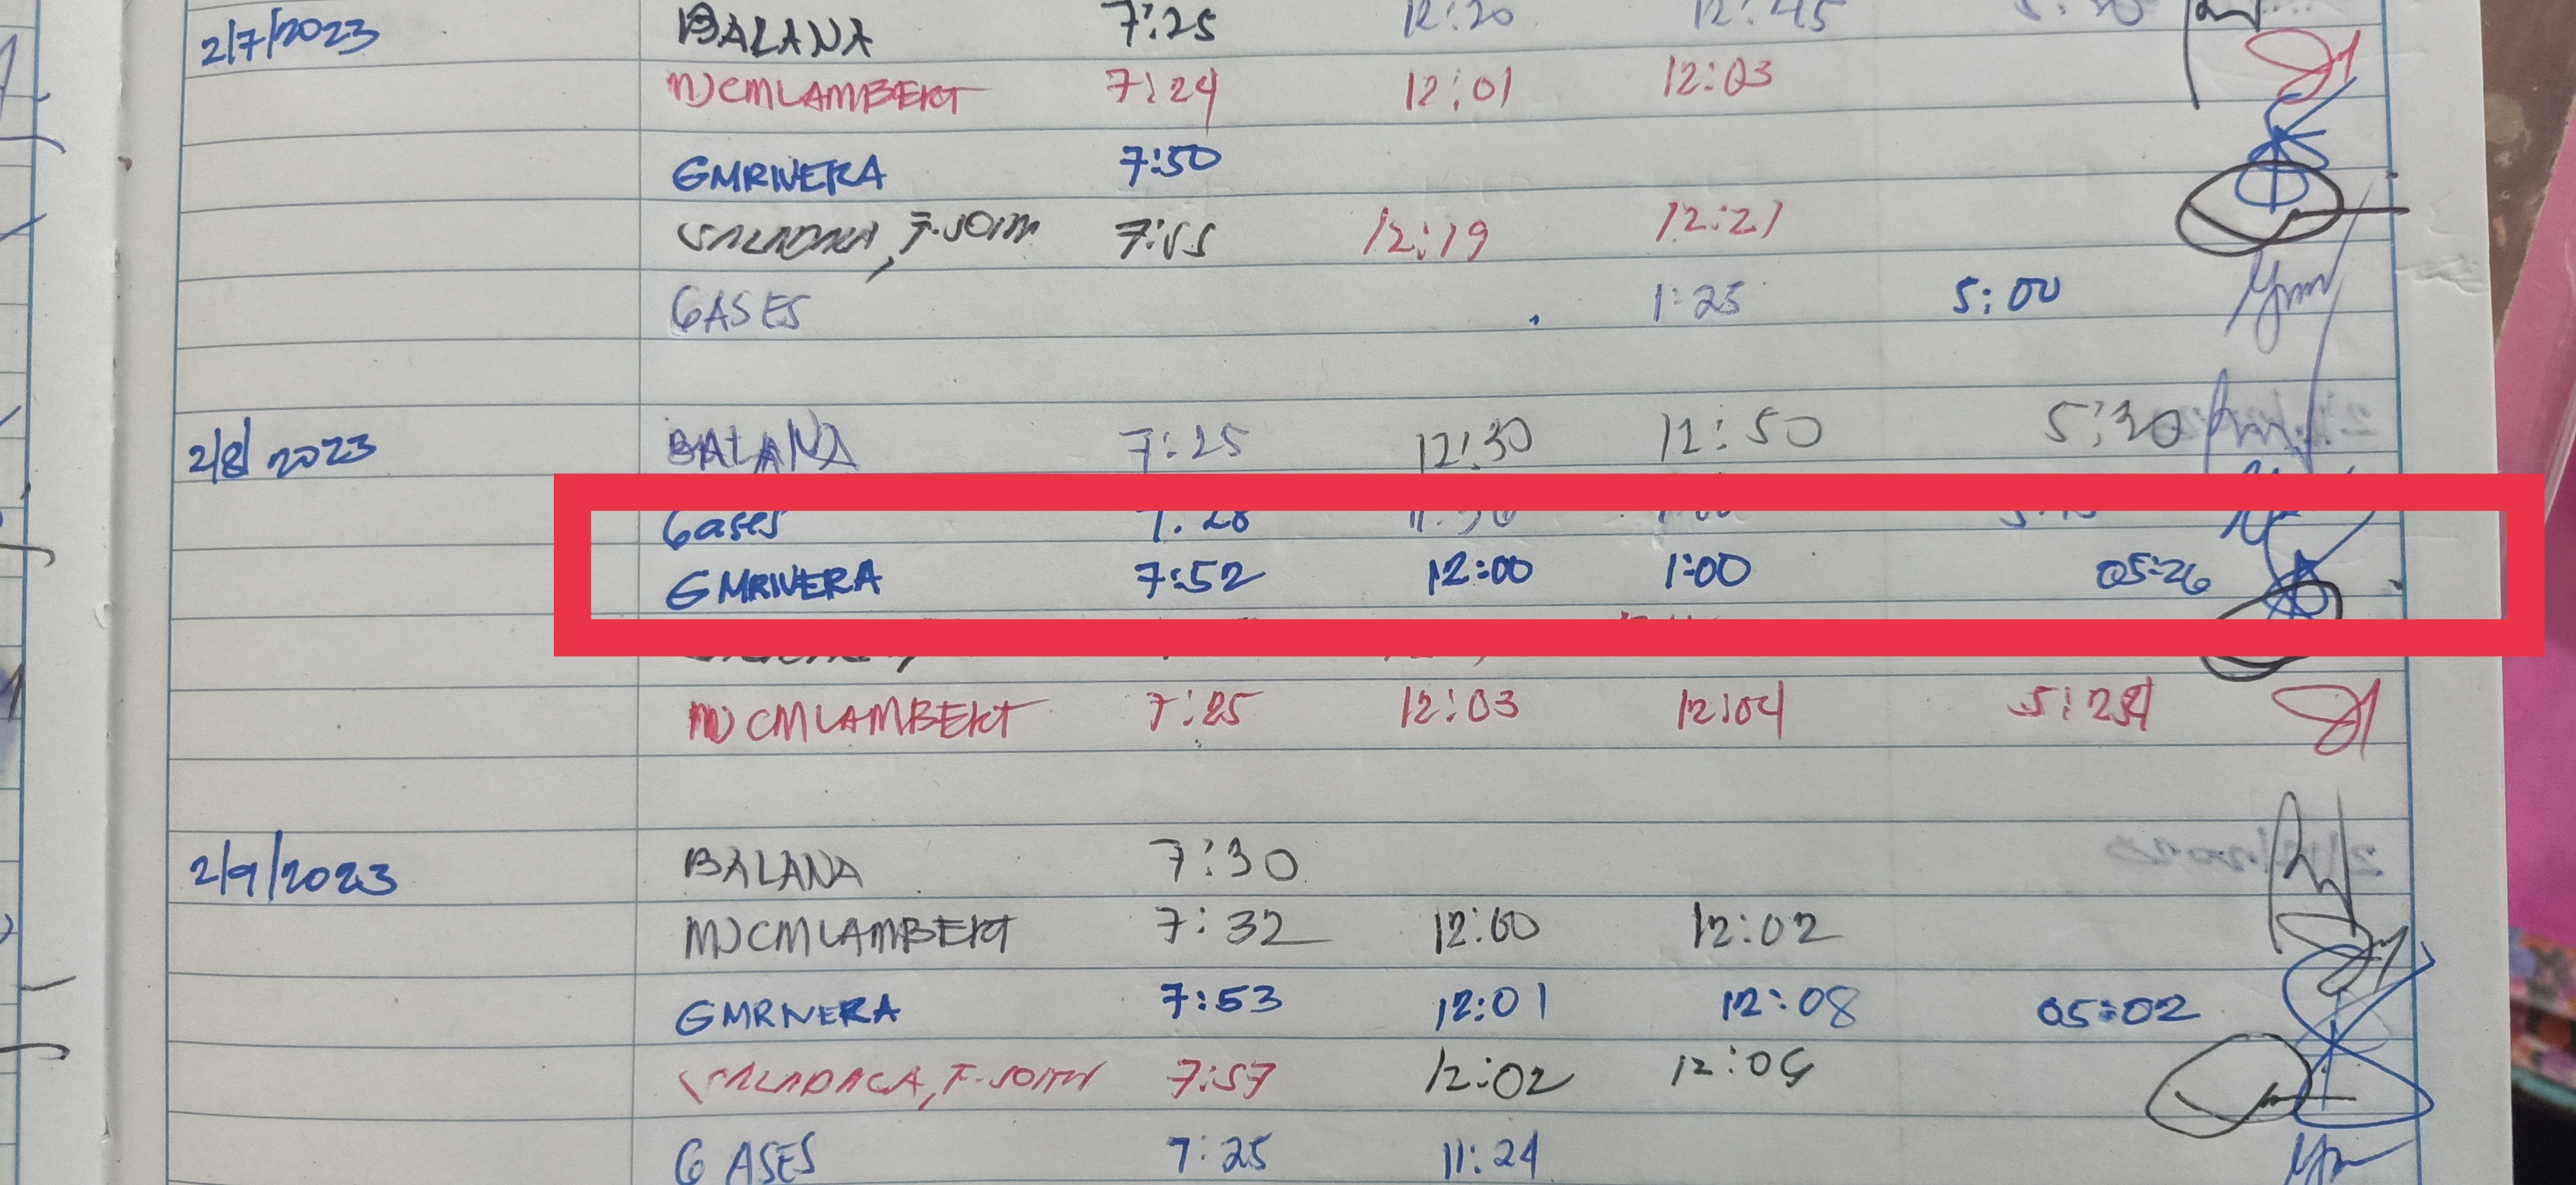 2/7/2023 BALANA 7:25 12:20 12:45
MJCMLAMBERT 7:24 12:01 12:03
GMRIVERA 7:50
7:55 12:19 12:21
GASES 1:25 5:00
2/8/2023 BALANA 7:25 12:30 12:50 5:30
Gases 7:28
GMRIVERA 7:52 12:00 1:00 05:26
MJCMLAMBERT 7:25 12:03 12:04
2/9/2023 BALANA 7:30
MJCMLAMBERT 7:32 12:00 12:02
GMRIVERA 7:53 12:01 12:08 05:02
7:57 12:02
GASES 7:25 11:24